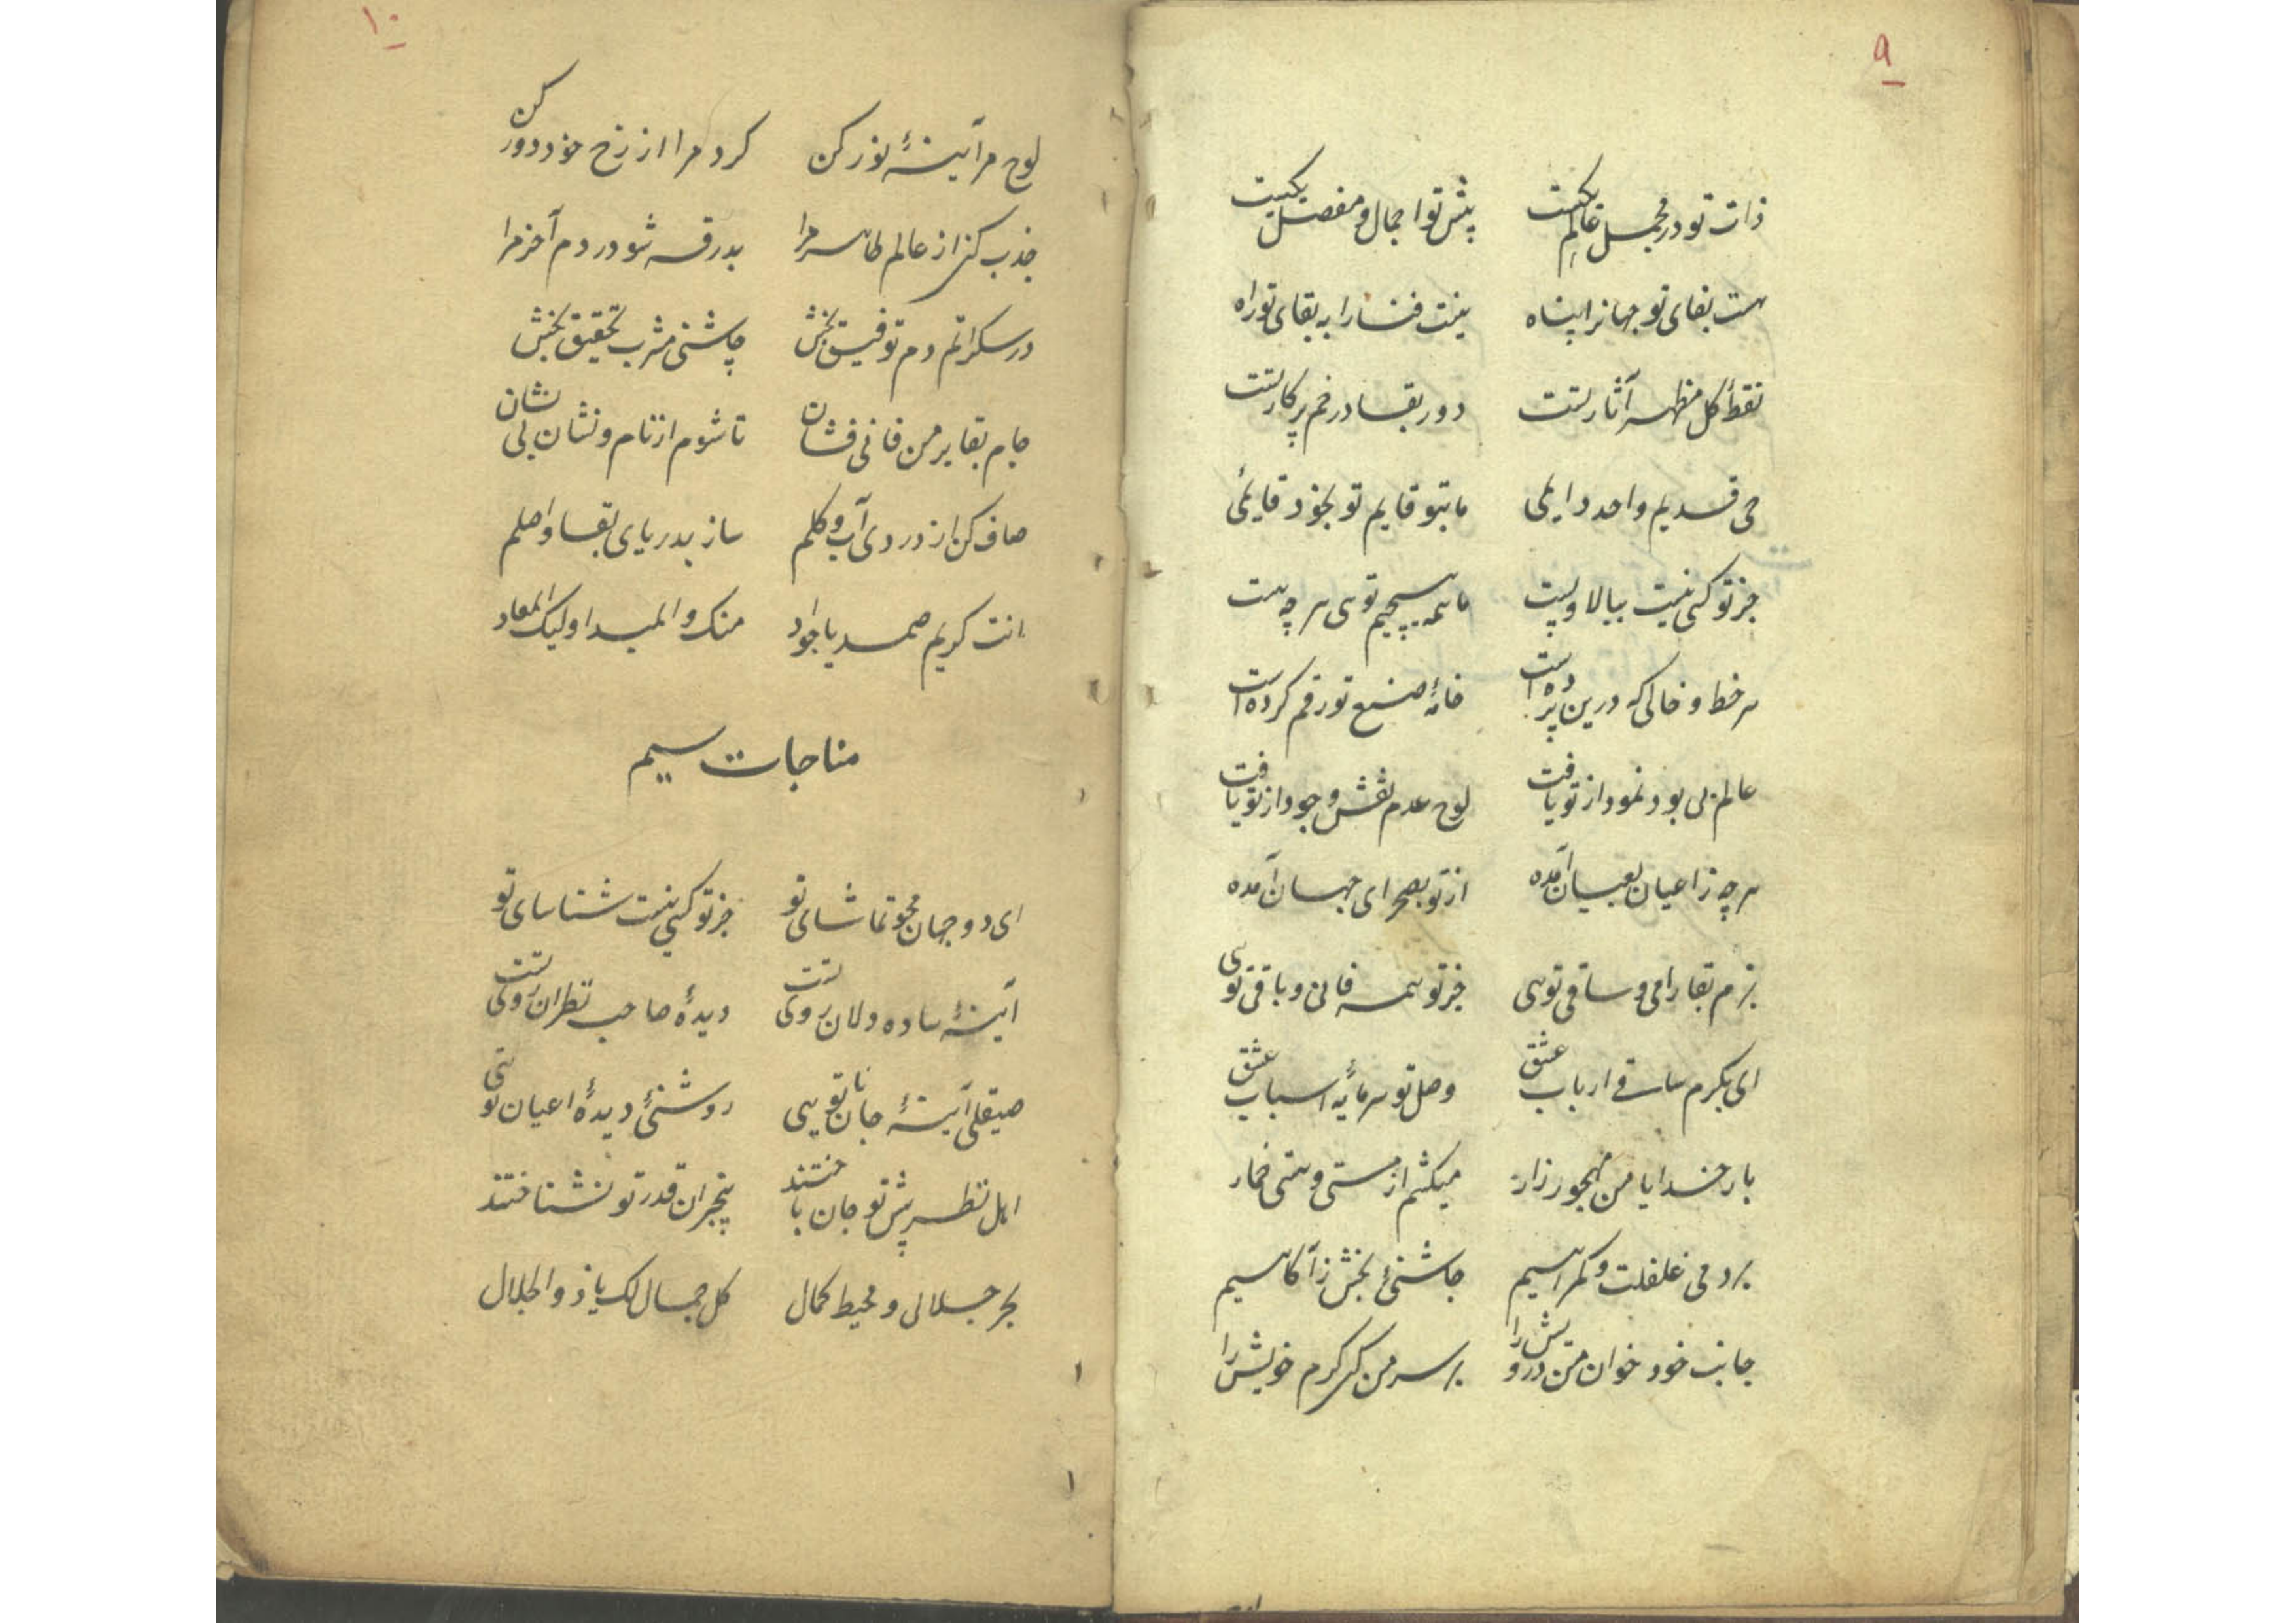 ۹
ذات تو در مجمل عالم یکیست پیش تو اجمال و مفصل یکیست
هست بقای تو جهانرا پناه نیست فنا را به بقای تو راه
نقطهٔ کل مظهر آثار تست دور بقا در خم پرکار تست
حی قدیم واحد دایمی ما بتو قایم تو بخود قایمی
جز تو کسی نیست ببالا و پست ما همه هیچیم تویی هر چه هست
هر خط و خالی که درین پرده است خامهٔ صنع تو رقم کرده است
عالم بی بود نمود از تو یافت لوح عدم نقش وجود از تو یافت
هر چه ز اعیان بعیان آمده از تو بصحرای جهان آمده
بزم بقا را می و ساقی تویی جز تو همه فانی و باقی تویی
ای بکرم ساقی ارباب عشق وصل تو سرمایهٔ اسباب عشق
بار خدایا من مهجور زار میکشم از مستی و هستی خمار
برد می غفلت و گمراهیم چاشنئ بخش ز آگاهیم
جانب خود خوان من درویش را بر سر من کن کرم خویش را
۱۰
لوح مرا آینهٔ نور کن گرد مرا از رخ خود دور کن
جذب کن از عالم ظاهر مرا بدرقه شو در دم آخر مرا
در سکراتم دم توفیق بخش چاشنی مشرب تحقیق بخش
جام بقا بر من فانی فشان تا شوم از نام و نشان بی نشان
صاف کن از دردی آب و گلم ساز بدریای بقا واصلم
انت کریم صمد یا جواد منک و المبدا و لیک المعاد
مناجات سیم
ای دو جهان محو تماشای تو جز تو کسی نیست شناسای تو
آینهٔ ساده دلان روی تست دیدهٔ صاحب نظران روی تست
صیقلی آینهٔ جانان تویی روشنئ دیدهٔ اعیان تویی
اهل نظر پیش تو جان باختند بیخبران قدر تو نشناختند
بحر جلالی و محیط کمال کل جمال لک یا ذو الجلال